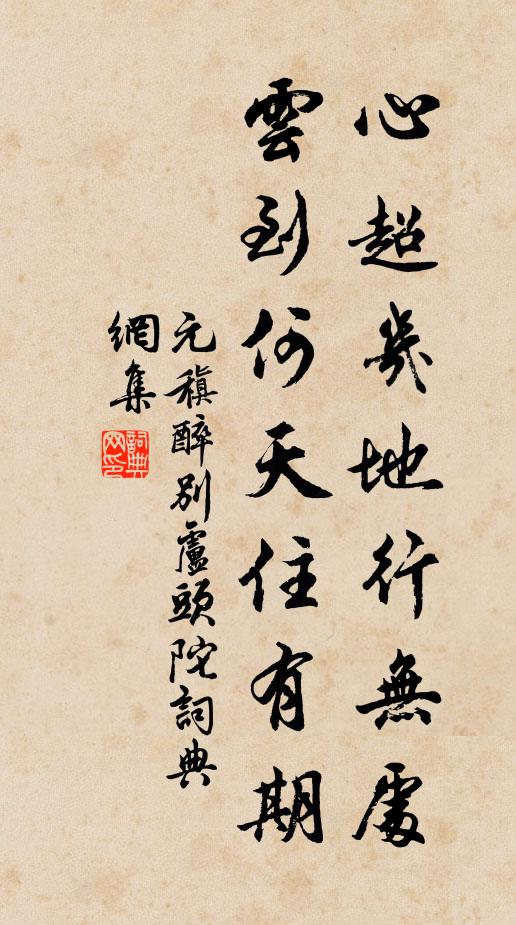 心超幾地行無處
雲到何天住有期
元稹醉別盧頭陀詞典
網集
詞典
网印